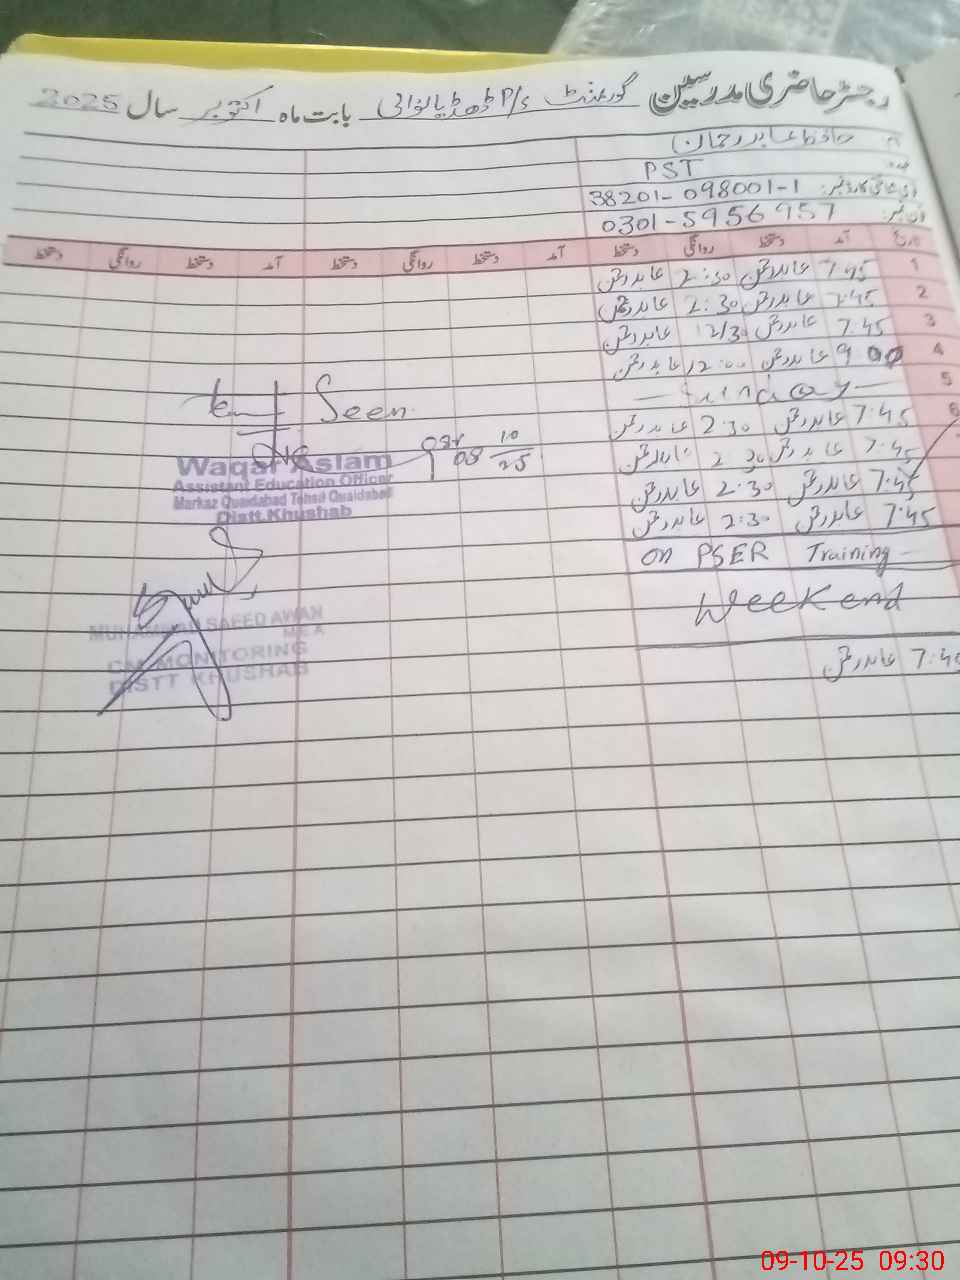 رجسٹر حاضری مدرسین گورنمنٹ P/S بابت ماہ اکتوبر سال 2025
حافظ عابد رحمان
PST
38201-098001-1
0301-5956957
تاریخ آمد دستخط روانگی دستخط آمد دستخط روانگی دستخط آمد دستخط روانگی دستخط
1 7:45 عابد رحمٰن 2:30 عابد رحمٰن
2 7:45 عابد رحمٰن 2:30 عابد رحمٰن
3 7:45 عابد رحمٰن 12/30 عابد رحمٰن
4 9:00 عابد رحمٰن 12:00 عابد رحمٰن
5 Sunday
6 7:45 عابد رحمٰن 2:30 عابد رحمٰن
7:45 عابد رحمٰن 2:30 عابد رحمٰن
7:45 عابد رحمٰن 2:30 عابد رحمٰن
7:45 عابد رحمٰن 2:30 عابد رحمٰن
on PSER Training
Weekend
7:45 عابد رحمٰن
Seen
08 10/25
Waqar Aslam
Assistant Education Officer
Markaz Quaidabad Tehsil Quaidabad
Distt.Khushab
MUHAMMAD SAEED AWAN
M.E.A
CM MONITORING
DISTT KHUSHAB
09-10-25 09:30